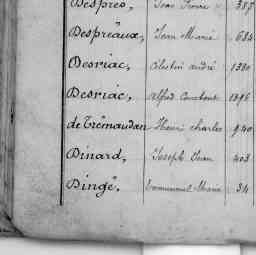 Després, Jean Pierre 385
Despréaux, Jean Marie 684
Desriac, Célestin andré 1380
Desriac, alfred Constant 1396
de Trémaudan Henri charles 940
Dinard, Joseph Jean 403
Dingé, Emmanuel Marie 34